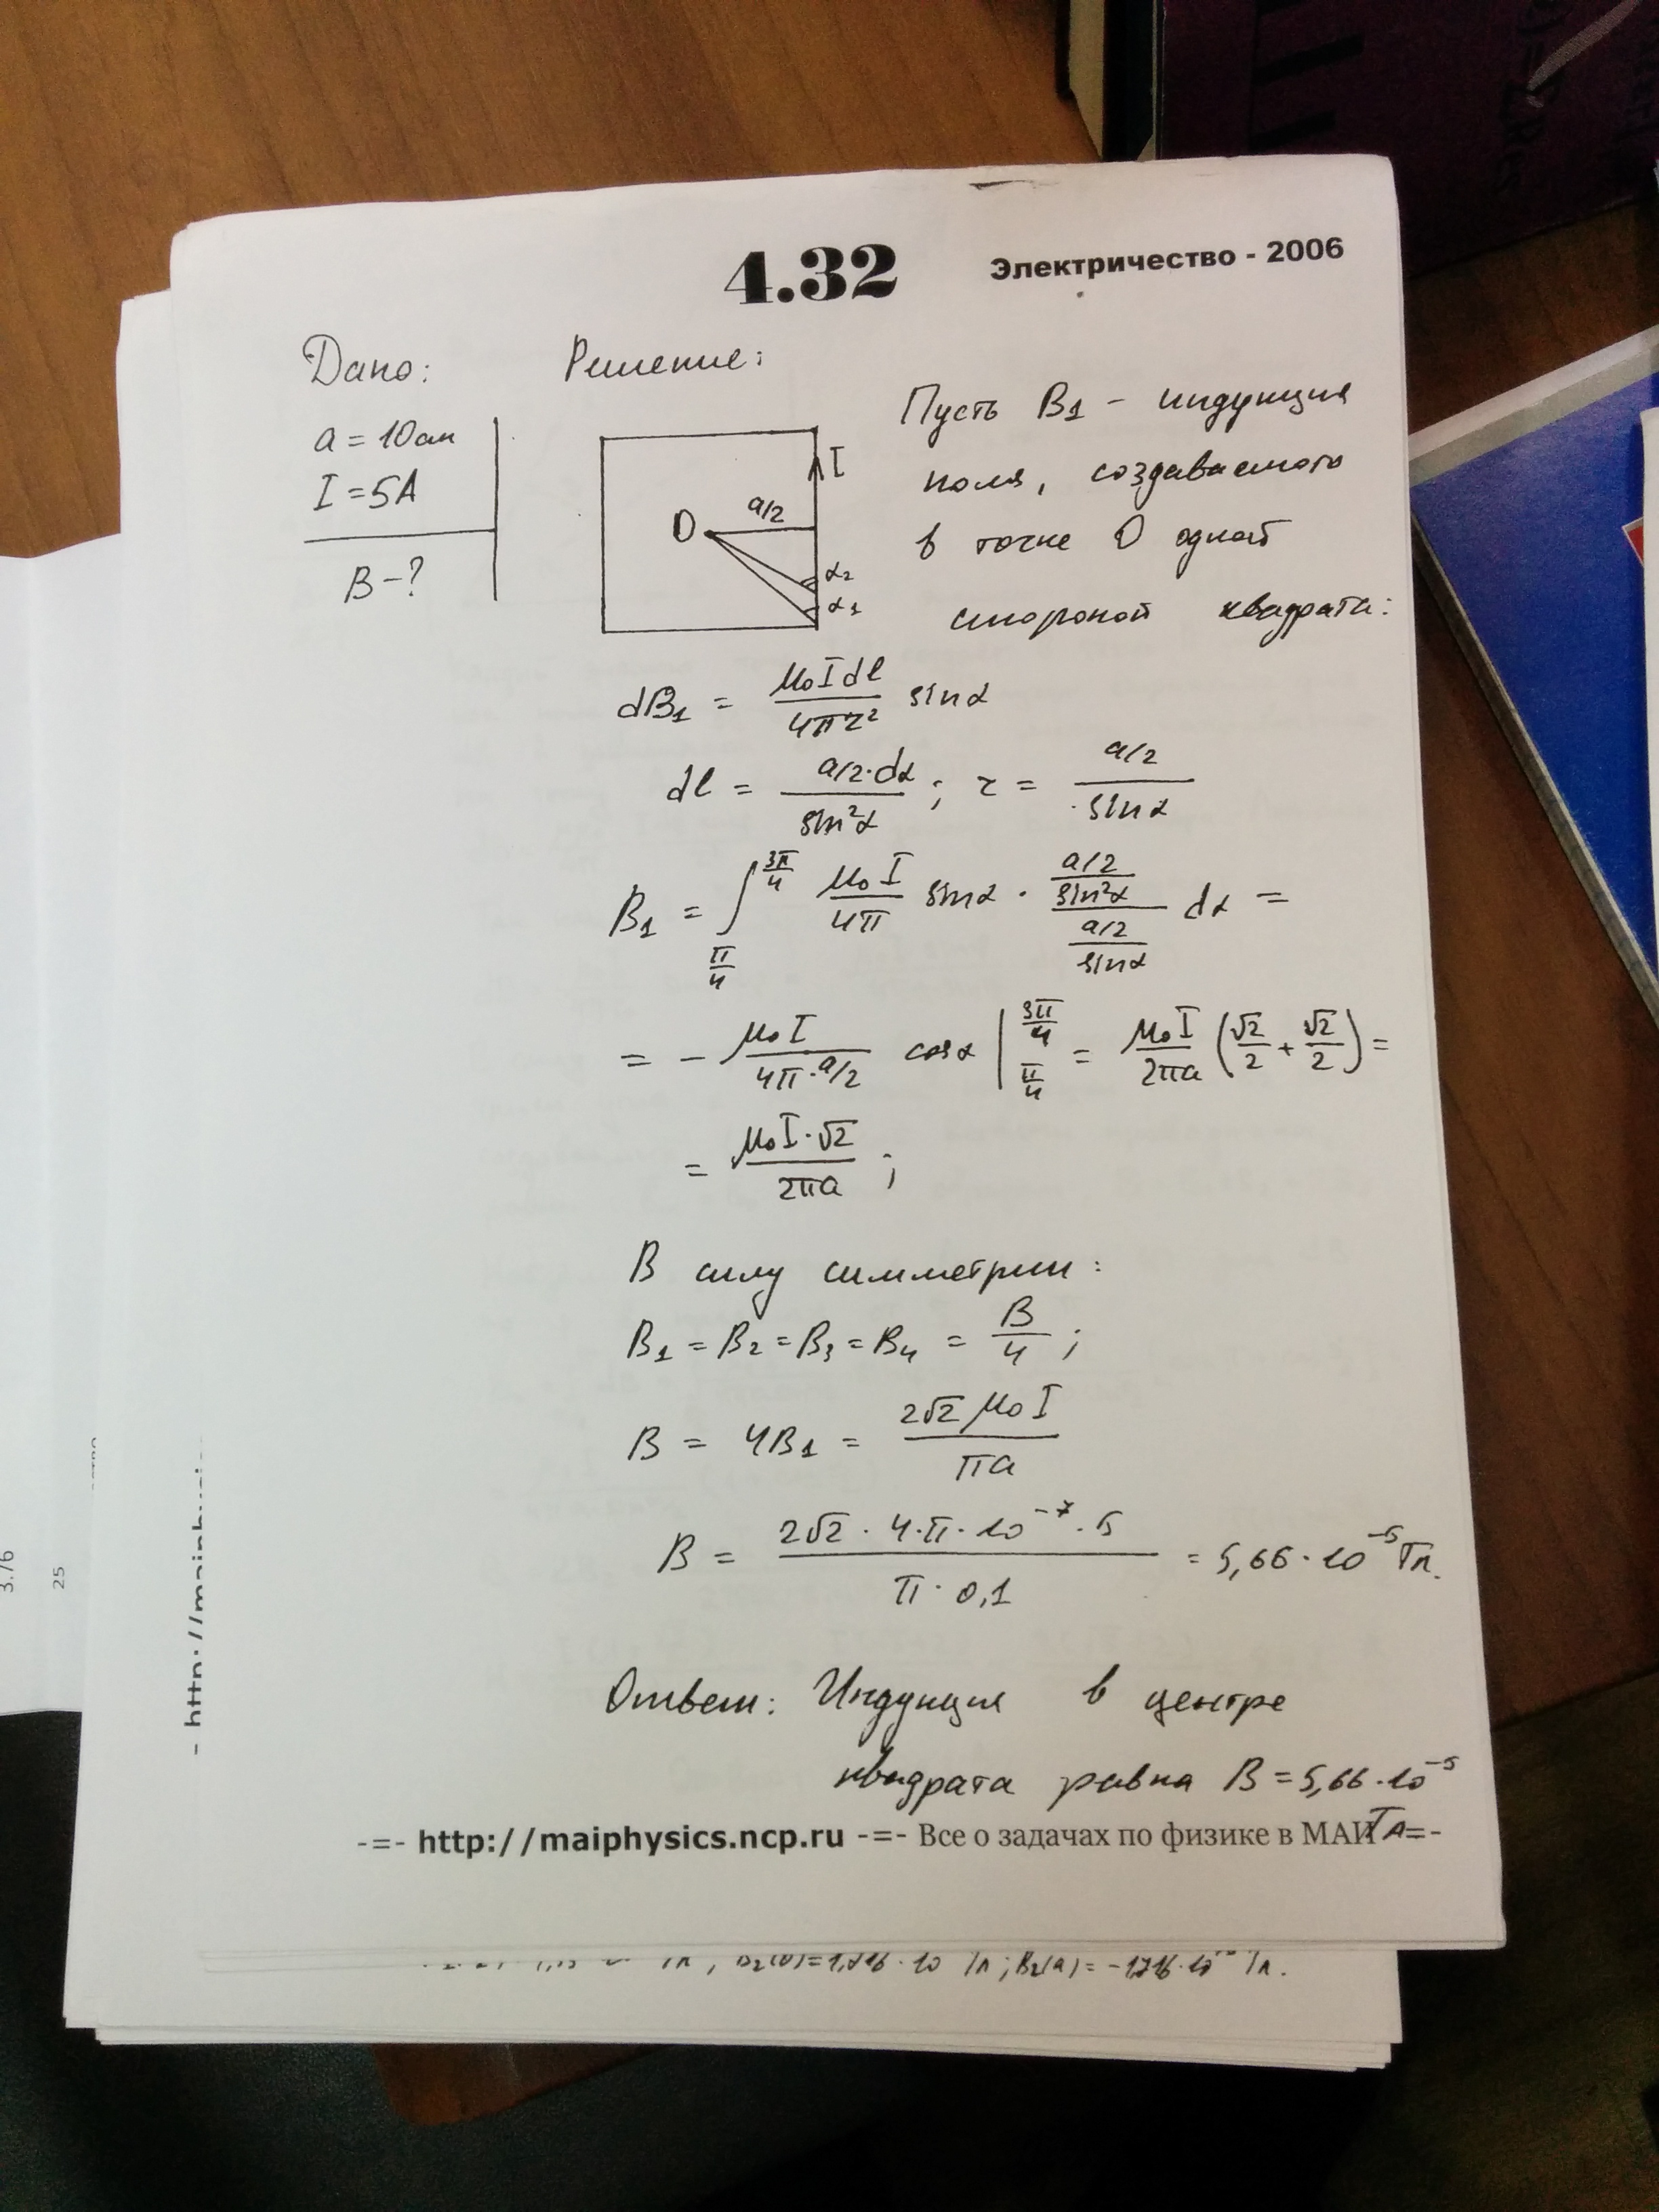 4.32
Электричество - 2006
Дано:
a = 10см
I = 5A
B - ?
Решение:
I
a/2
O
α₂
α₁
Пусть B₁ - индукция
поля, создаваемого
в точке O одной
стороной квадрата:
dB₁ = μ₀Idl/4πr² sinα
dl = a/2·dα/sin²α ; r = a/2/sinα
B₁ = ∫_{π/4}^{3π/4} μ₀I/4π sinα · (a/2/sin²α)/(a/2/sinα) dα =
= - μ₀I/4π·a/2 cosα |_{π/4}^{3π/4} = μ₀I/2πa (√2/2 + √2/2) =
= μ₀I·√2/2πa ;
В силу симметрии:
B₁ = B₂ = B₃ = B₄ = B/4 ;
B = 4B₁ = 2√2 μ₀I/πa
B = 2√2 · 4·π·10⁻⁷·5/π·0,1 = 5,66·10⁻⁵ Тл.
Ответ: Индукция в центре
квадрата равна B = 5,66·10⁻⁵
Тл
-=- http://maiphysics.ncp.ru -=- Все о задачах по физике в МАИ -=-
- http://maiphysi
3.76
25